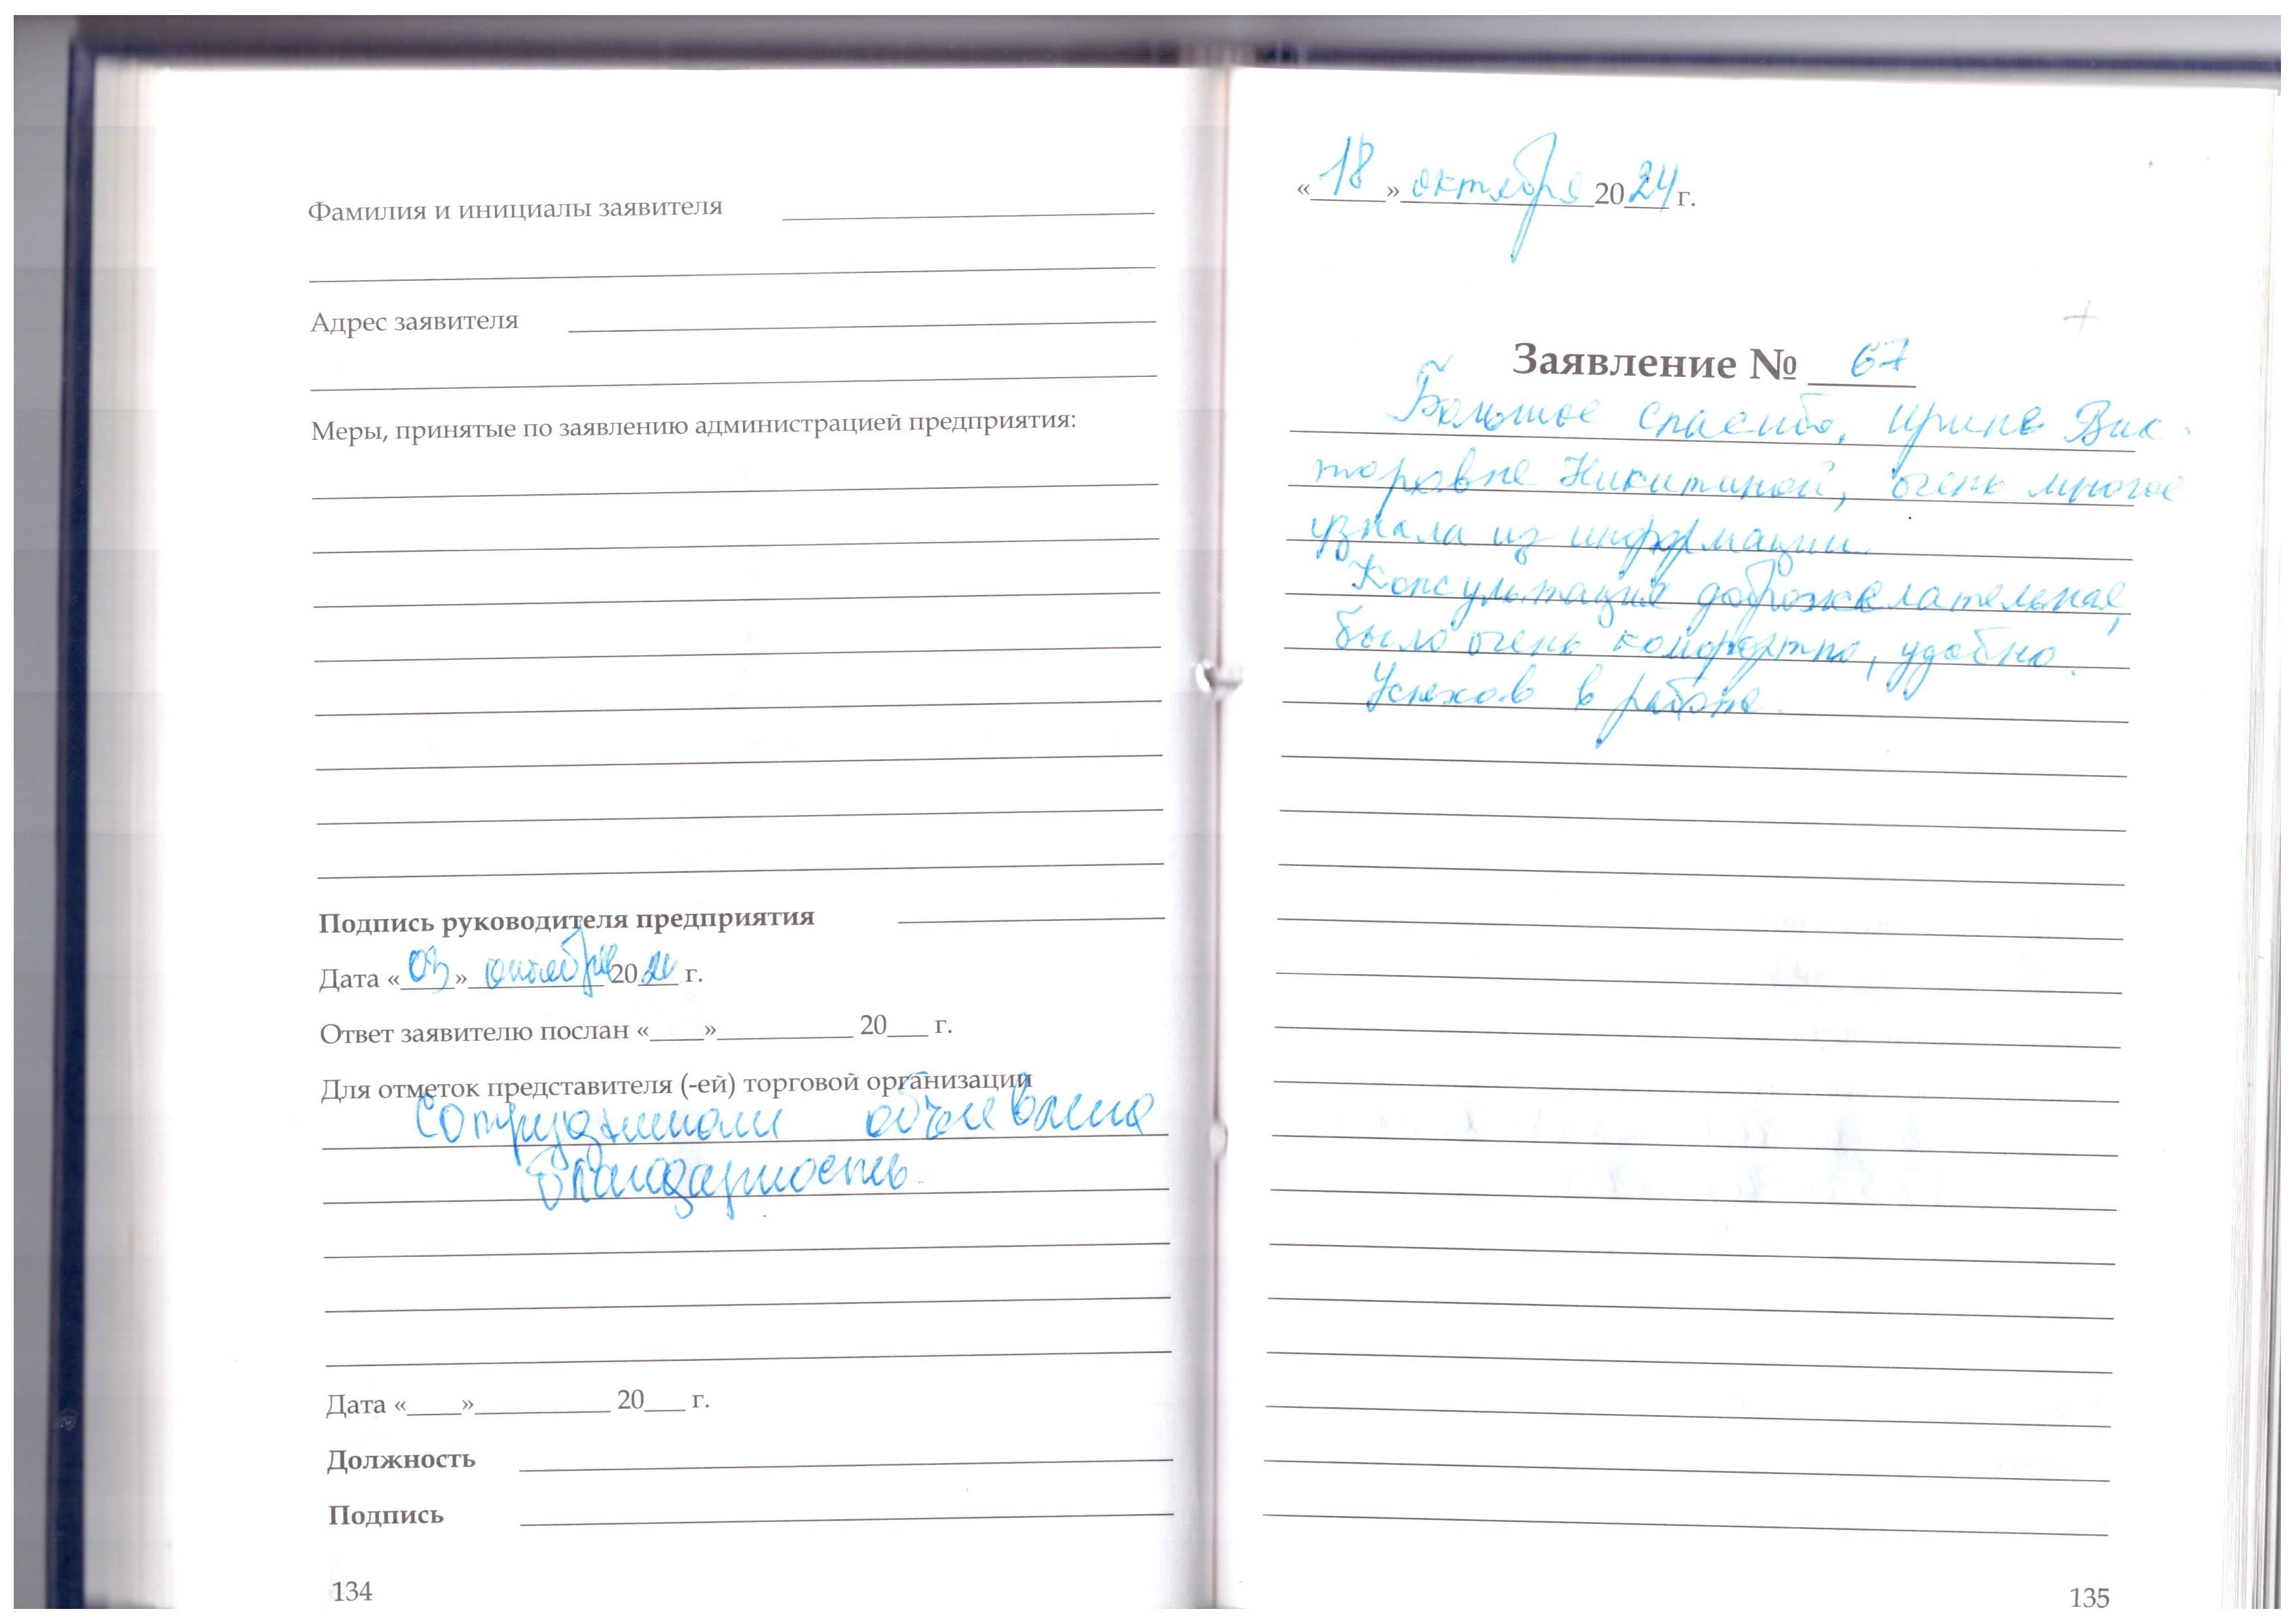 Фамилия и инициалы заявителя
Адрес заявителя
Меры, принятые по заявлению администрацией предприятия:
Подпись руководителя предприятия
Дата «03» октября 2024 г.
Ответ заявителю послан «____»__________ 20___ г.
Для отметок представителя (-ей) торговой организации
Сотрудникам объявлена
благодарность.
Дата «____»__________ 20___ г.
Должность
Подпись
134
«18» октября 2024 г.
Заявление № 67
Большое спасибо, Ирине Вик-
торовне Никитиной, очень многое
узнала из информации.
Консультация доброжелательная,
было очень комфортно, удобно.
Успехов в работе.
135